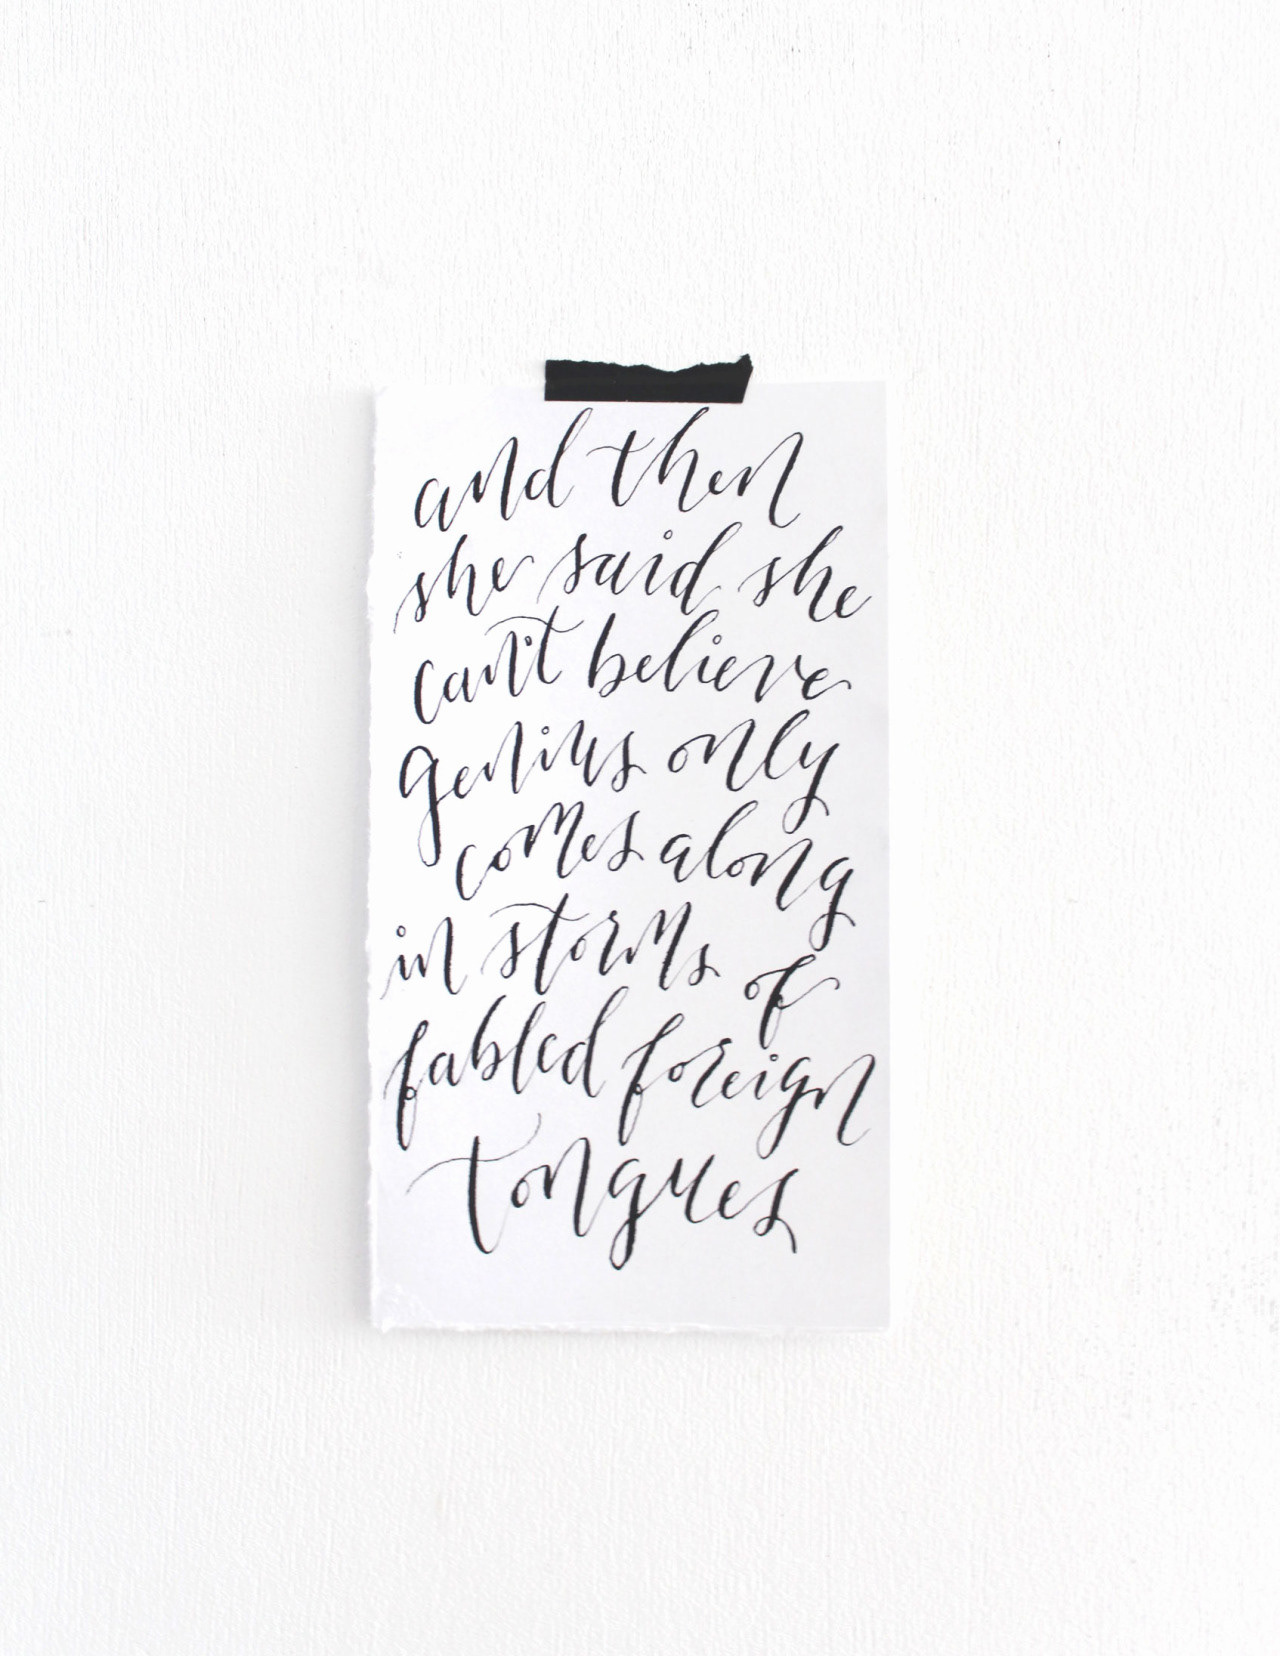 and then
she said she
can't believe
genius only
comes along
in storms of
fabled foreign
tongues